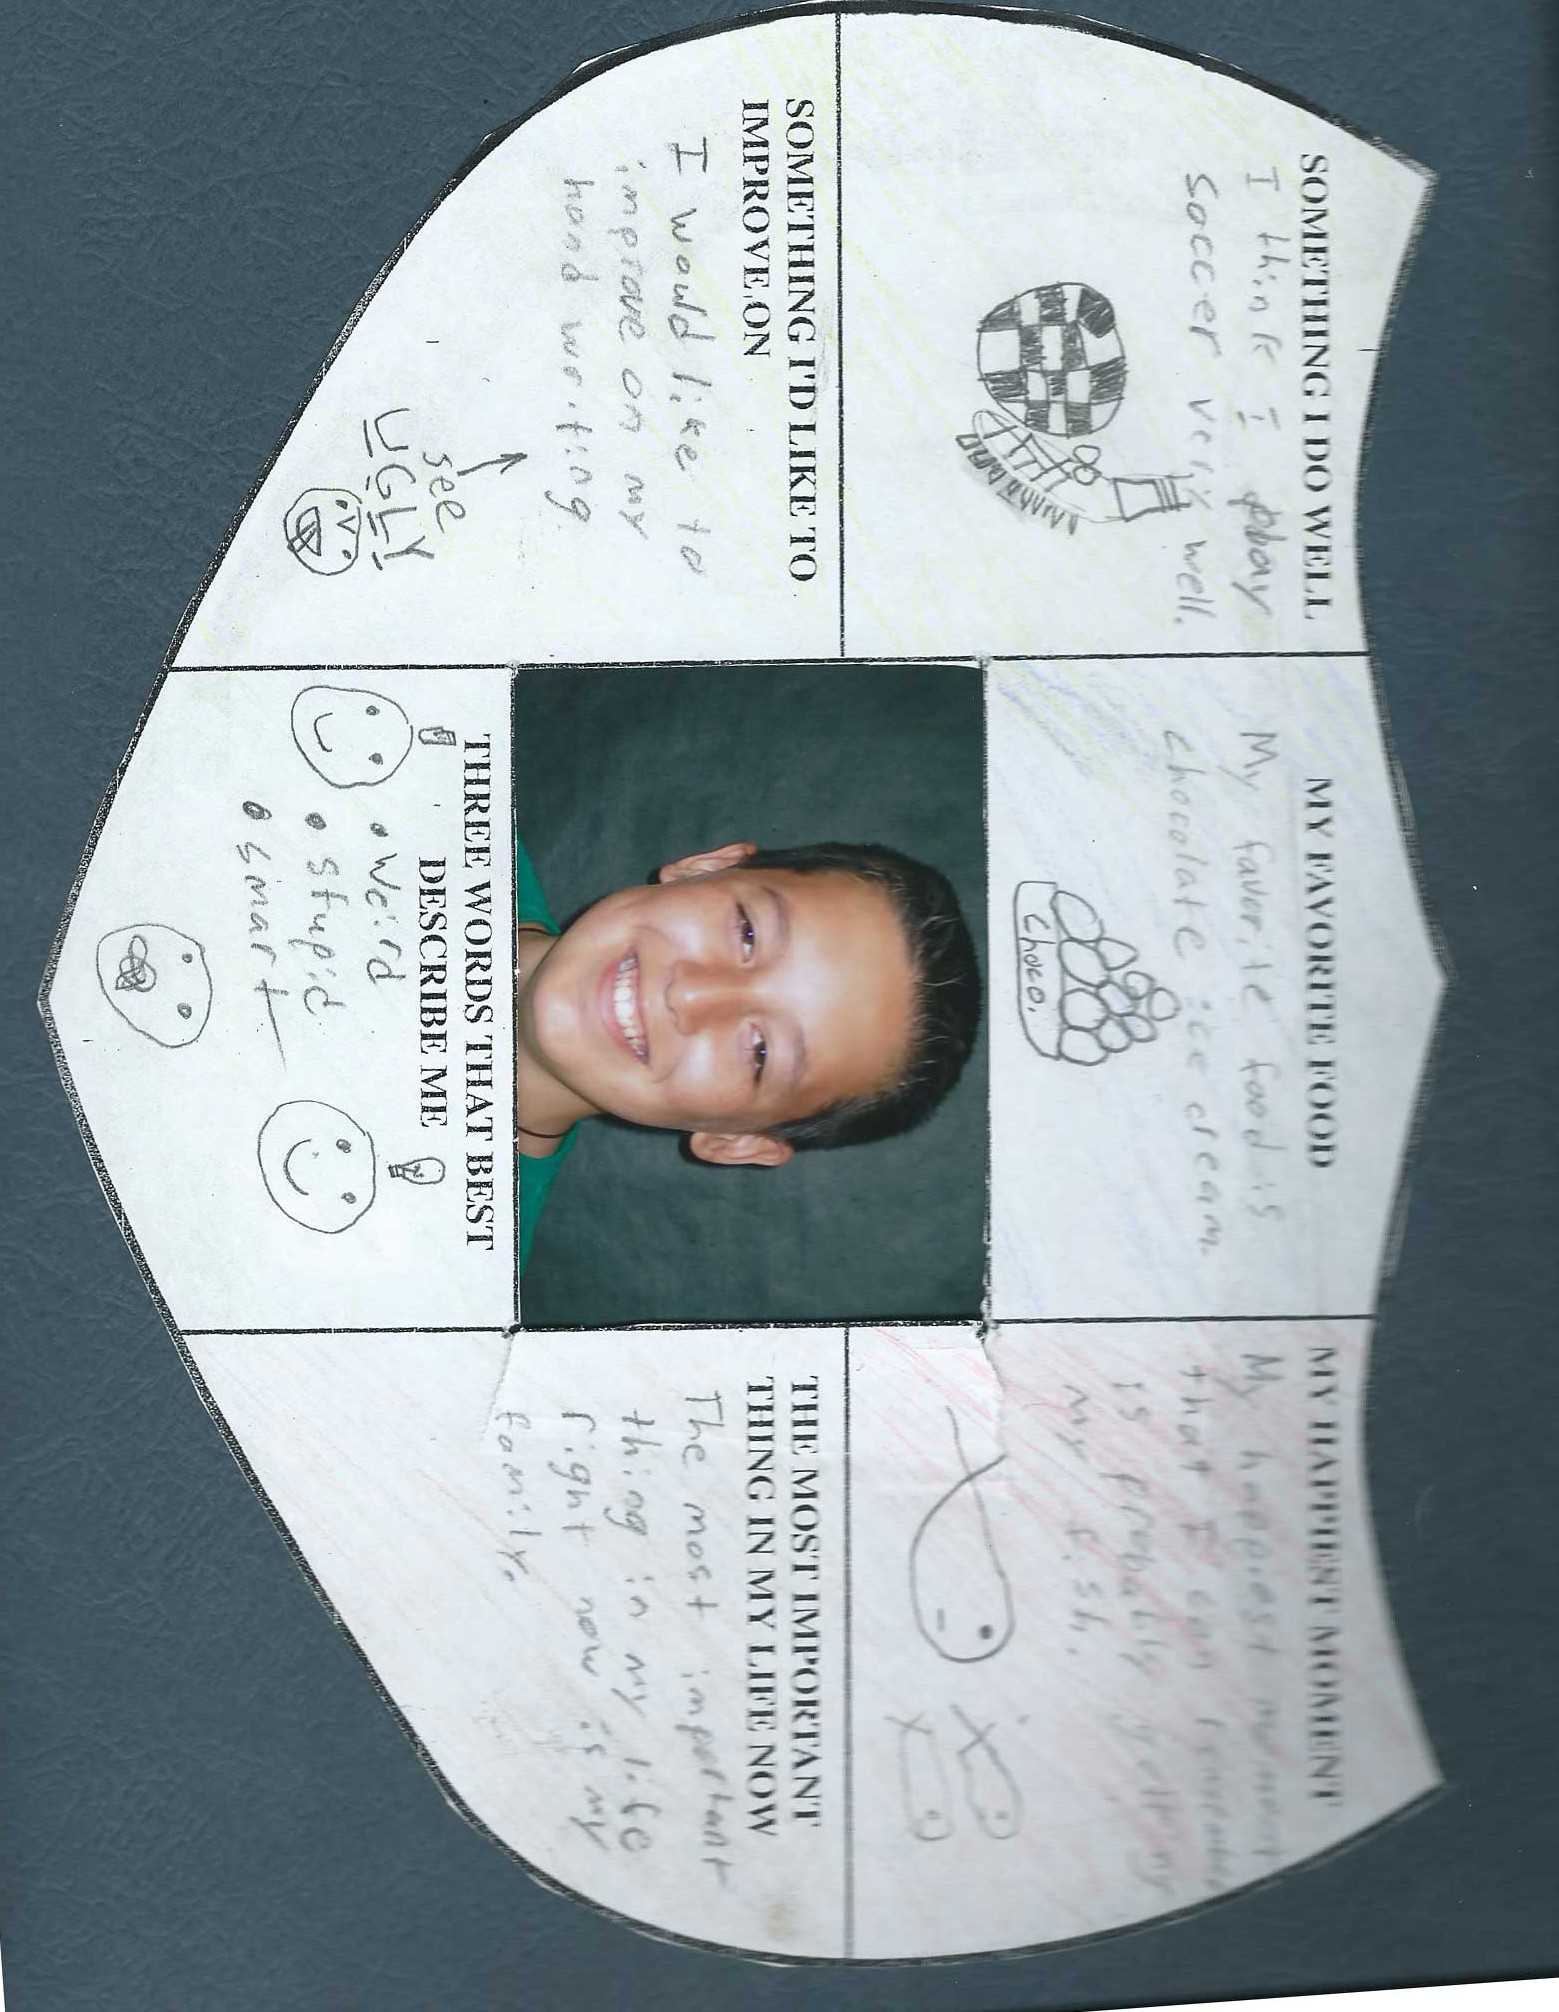 SOMETHING I DO WELL
I think I play
soccer very well.
MY FAVORITE FOOD
My favorite food is
chocolate ice cream.
Choco.
MY HAPPIEST MOMENT
My happiest moment
that I can remember
is probably getting
my fish.
SOMETHING I'D LIKE TO
IMPROVE ON
I would like to
improve on my
hand writing
see
UGLY
THREE WORDS THAT BEST
DESCRIBE ME
• Weird
• Stupid
• Smart
THE MOST IMPORTANT
THING IN MY LIFE NOW
The most important
thing in my life
right now is my
family.